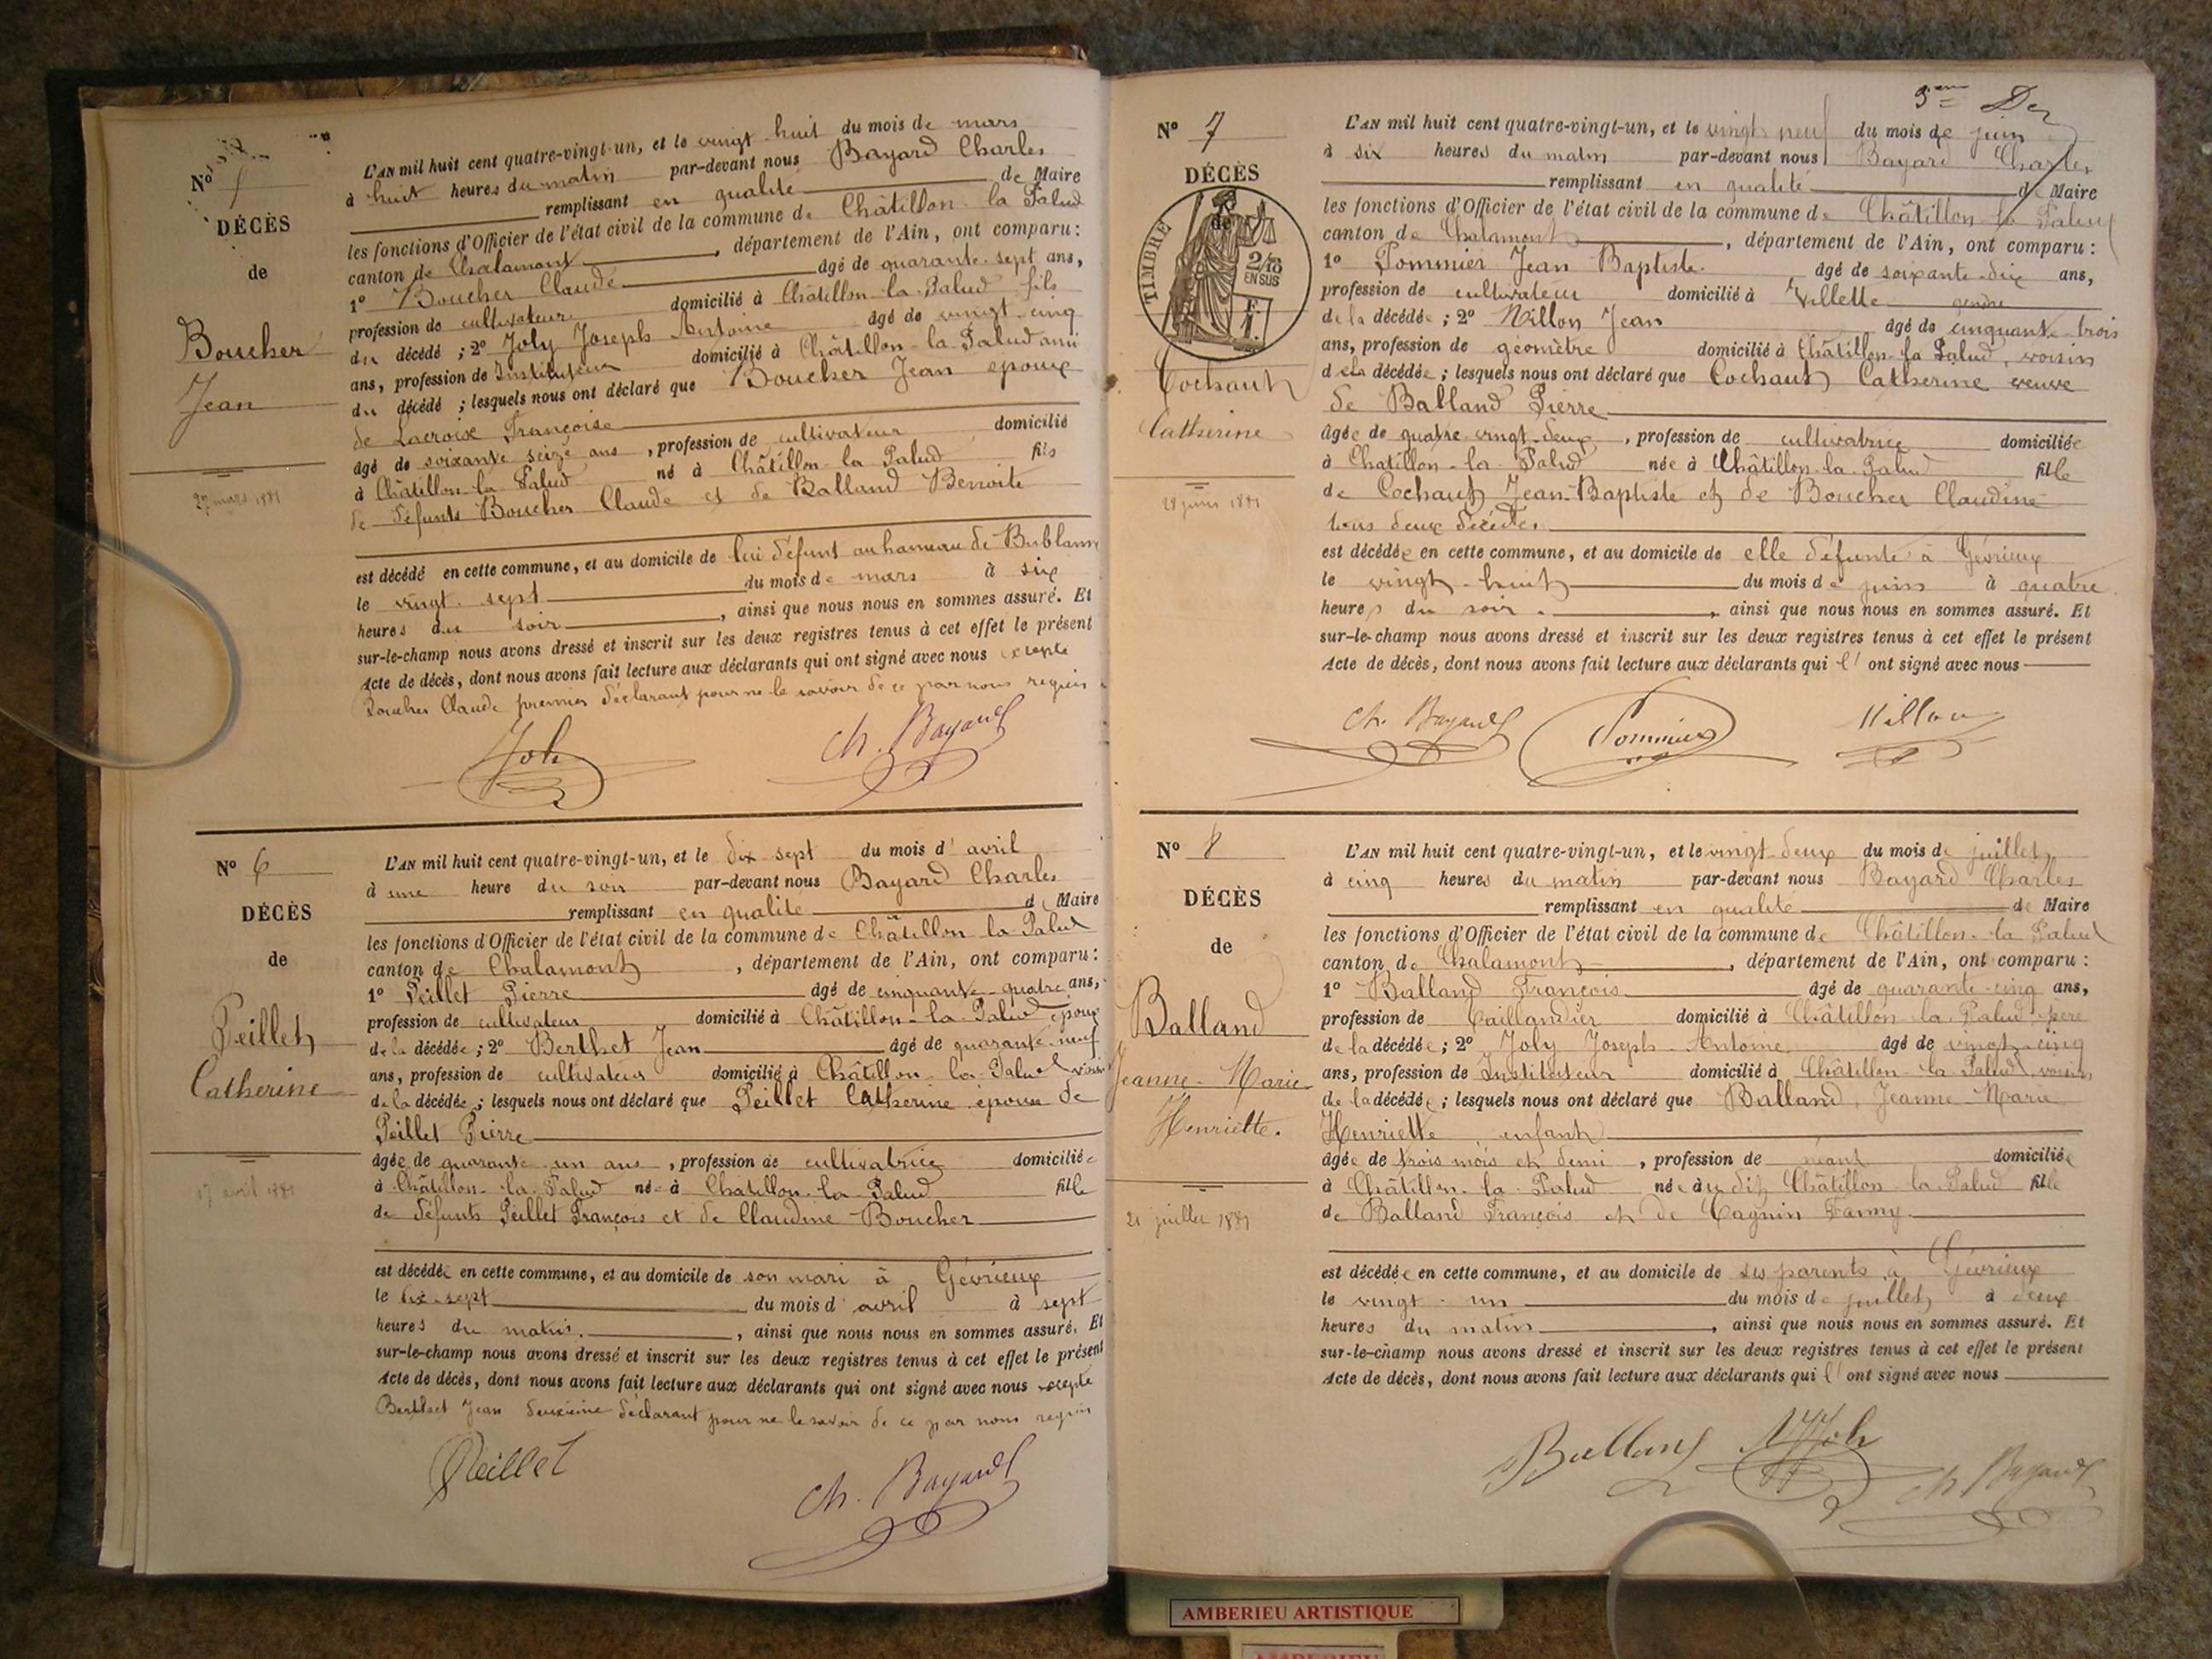 Nº
DÉCÈS
de
Boucher
Jean
27 mars 1881
L'AN mil huit cent quatre-vingt-un, et le vingt huit du mois de mars
à huit heures du matin par-devant nous Bayard Charles
remplissant en qualité de Maire
les fonctions d'Officier de l'état civil de la commune de Châtillon-la Palud
canton de Chalamont, département de l'Ain, ont comparu :
1º Boucher Claude âgé de quarante-sept ans,
profession de cultivateur domicilié à Châtillon-la-Palud fils
du décédé ; 2º Joly Joseph Antoine âgé de vingt-cinq
ans, profession de Instituteur domicilié à Châtillon-la-Palud ami
du décédé ; lesquels nous ont déclaré que Boucher Jean époux
de Lacroix Françoise
âgé de soixante seize ans, profession de cultivateur domicilié
à Châtillon-la Palud né à Châtillon-la Palud fils
de défunts Boucher Claude et de Balland Benoite
est décédé en cette commune, et au domicile de lui défunt au hameau de Bublane
le vingt-sept du mois de mars à six
heures du soir, ainsi que nous nous en sommes assuré. Et
sur-le-champ nous avons dressé et inscrit sur les deux registres tenus à cet effet le présent
Acte de décès, dont nous avons fait lecture aux déclarants qui ont signé avec nous excepté
Boucher Claude premier déclarant pour ne le savoir de ce par nous requis
Joly Ch. Bayard
Nº 6
DÉCÈS
de
Peillet
Catherine
17 avril 1881
L'AN mil huit cent quatre-vingt-un, et le dix-sept du mois d'avril
à une heure du soir par-devant nous Bayard Charles
remplissant en qualité de Maire
les fonctions d'Officier de l'état civil de la commune de Châtillon la Palud
canton de Chalamont, département de l'Ain, ont comparu :
1º Peillet Pierre âgé de cinquante-quatre ans,
profession de cultivateur domicilié à Châtillon-la-Palud époux
de la décédée ; 2º Berthet Jean âgé de quarante-neuf
ans, profession de cultivateur domicilié à Châtillon-la-Palud voisin
de la décédée ; lesquels nous ont déclaré que Peillet Catherine épouse de
Peillet Pierre
âgée de quarante-un ans, profession de cultivatrice domiciliée
à Châtillon-la-Palud née à Chatillon-la-Palud fille
de défunts Peillet François et de Claudine Boucher
est décédée en cette commune, et au domicile de son mari à Gévrieux
le dix-sept du mois d'avril à sept
heures du matin, ainsi que nous nous en sommes assuré. Et
sur-le-champ nous avons dressé et inscrit sur les deux registres tenus à cet effet le présent
Acte de décès, dont nous avons fait lecture aux déclarants qui ont signé avec nous excepté
Berthet Jean deuxième déclarant pour ne le savoir de ce par nous requis
Peillet Ch. Bayard
Nº 7
DÉCÈS
de
TIMBRE
2/10
EN SUS
Cochaut
Catherine
28 juin 1881
L'AN mil huit cent quatre-vingt-un, et le vingt neuf du mois de juin
à six heures du matin par-devant nous Bayard Charles
remplissant en qualité de Maire
les fonctions d'Officier de l'état civil de la commune de Châtillon la Palud
canton de Chalamont, département de l'Ain, ont comparu :
1º Pommier Jean Baptiste âgé de soixante-dix ans,
profession de cultivateur domicilié à Villette gendre
de la décédée ; 2º Millon Jean âgé de cinquante-trois
ans, profession de géomètre domicilié à Châtillon-la Palud, voisin
de la décédée ; lesquels nous ont déclaré que Cochaut Catherine veuve
de Balland Pierre
âgée de quatre-vingt-deux, profession de cultivatrice domiciliée
à Chatillon-la-Palud née à Châtillon-la-Palud fille
de Cochaut Jean-Baptiste et de Boucher Claudine
tous deux décédés
est décédée en cette commune, et au domicile de elle défunte à Gévrieux
le vingt-huit du mois de juin à quatre
heures du soir, ainsi que nous nous en sommes assuré. Et
sur-le-champ nous avons dressé et inscrit sur les deux registres tenus à cet effet le présent
Acte de décès, dont nous avons fait lecture aux déclarants qui l'ont signé avec nous
Ch. Bayard Pommier Millon
Nº 8
DÉCÈS
de
Balland
Jeanne-Marie
Henriette.
21 juillet 1881
L'AN mil huit cent quatre-vingt-un, et le vingt-deux du mois de juillet
à cinq heures du matin par-devant nous Bayard Charles
remplissant en qualité de Maire
les fonctions d'Officier de l'état civil de la commune de Châtillon-la Palud
canton de Chalamont, département de l'Ain, ont comparu :
1º Balland François âgé de quarante-cinq ans,
profession de Taillandier domicilié à Châtillon-la Palud, père
de la décédée ; 2º Joly Joseph-Antoine âgé de vingt-cinq
ans, profession de Instituteur domicilié à Châtillon-la Palud, voisin
de la décédée ; lesquels nous ont déclaré que Balland, Jeanne-Marie
Henriette, enfant
âgée de trois mois et demi, profession de néant domiciliée
à Châtillon-la-Palud née au dit Châtillon-la-Palud fille
de Balland François et de Cagnin Fanny.
est décédée en cette commune, et au domicile de ses parents à Gévrieux
le vingt-un du mois de juillet à deux
heures du matin, ainsi que nous nous en sommes assuré. Et
sur-le-champ nous avons dressé et inscrit sur les deux registres tenus à cet effet le présent
Acte de décès, dont nous avons fait lecture aux déclarants qui l'ont signé avec nous
Balland Joly Ch. Bayard
AMBERIEU ARTISTIQUE
AMBERIEU